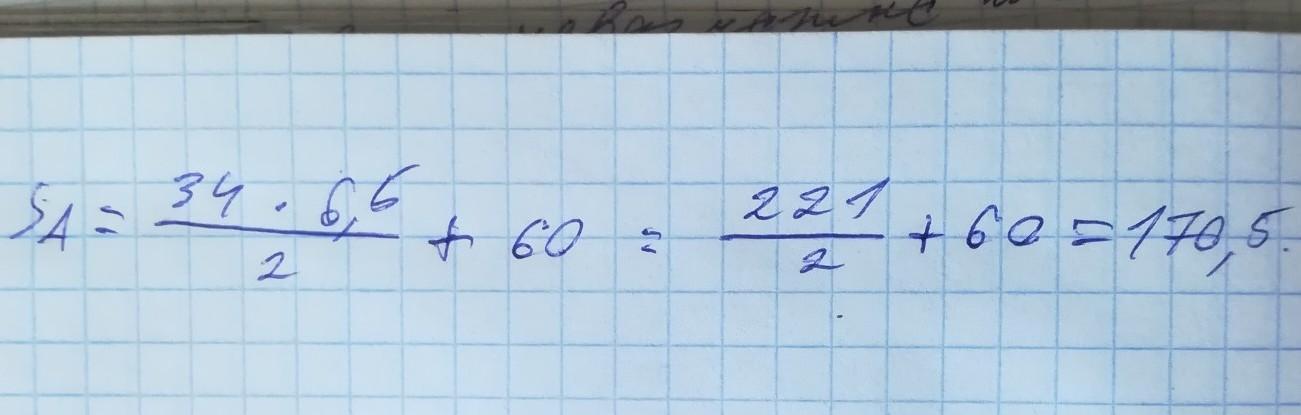 S_A = (34 · 6,5)/2 + 60 = 221/2 + 60 = 170,5.